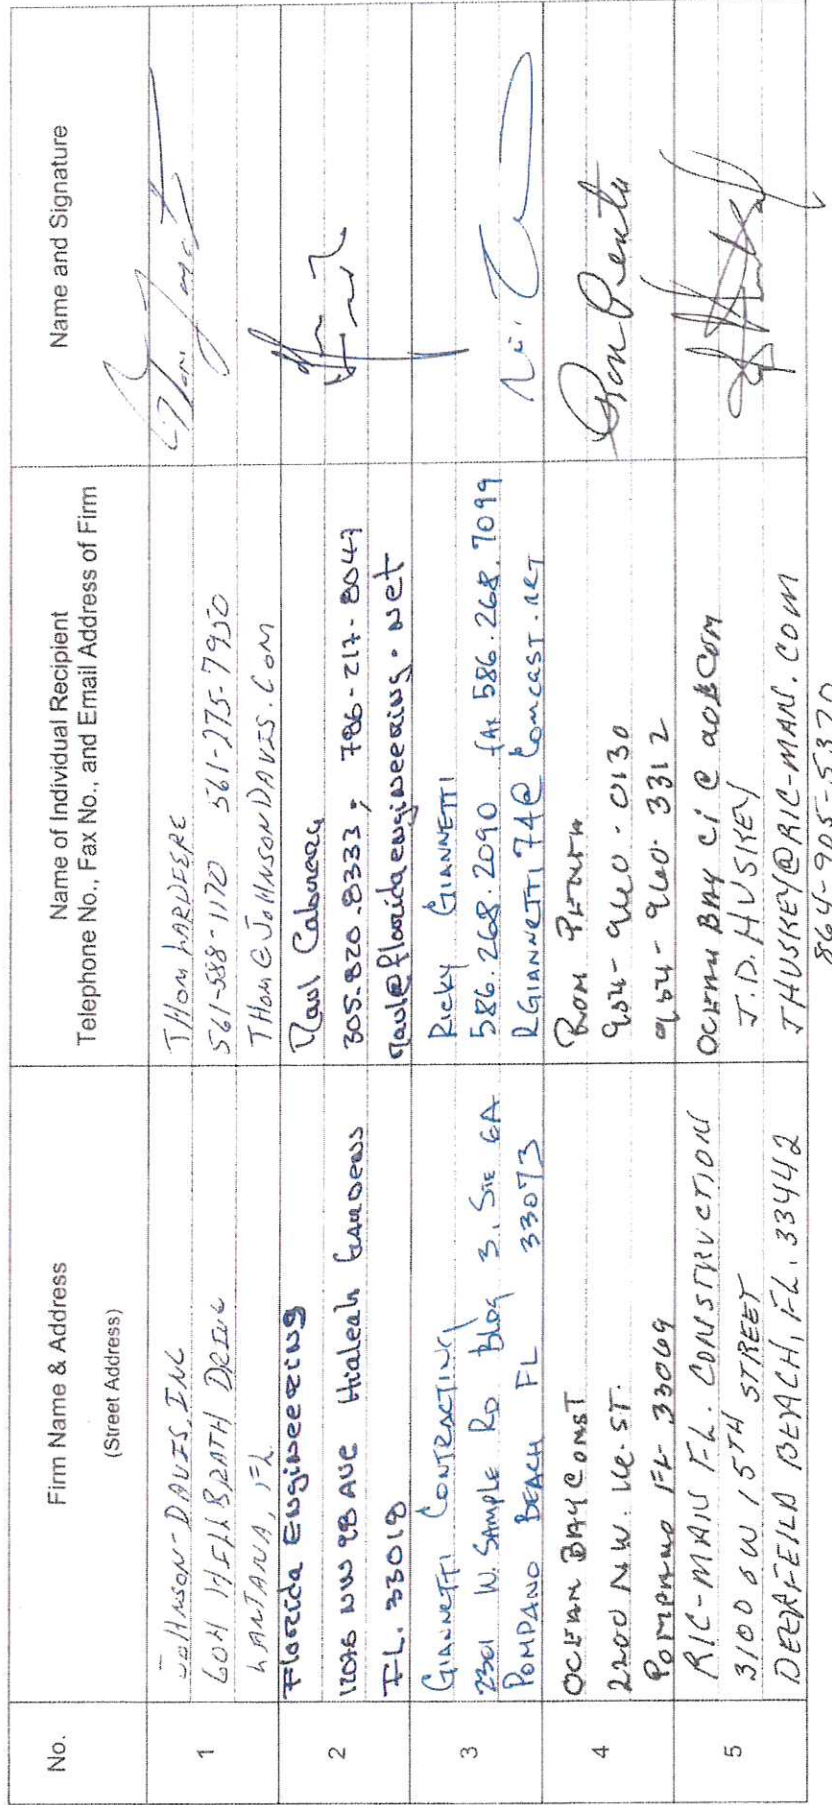 No.
Firm Name & Address
(Street Address)
Name of Individual Recipient
Telephone No., Fax No., and Email Address of Firm
Name and Signature
1
JOHNSON-DAVIS, INC
604 HILLBRATH DRIVE
LANTANA, FL
THOM LARDIERE
561-588-1170 561-275-7950
THOM@JOHNSONDAVIS.COM
2
Florida Engineering
12076 NW 98 AVE Hialeah Gardens
FL. 33018
Raul
305.820.8333, 786-217-8047
raul@floridaengineering.net
3
GIANNETTI CONTRACTING
2301 W. SAMPLE RD BLDG 3. STE 6A
POMPANO BEACH FL 33073
RICKY GIANNETTI
586.268.2090 FAX 586.268.7099
RGIANNETTI74@COMCAST.NET
4
OCEAN BAY CONST
2200 N.W. ST.
POMPANO FL 33069
RON
954-960-0130
954-960-3312
OCEAN BAY CI @ AOL COM
5
RIC-MAN FL. CONSTRUCTION
3100 SW 15TH STREET
DEERFEILD BEACH, FL. 33442
J.D. HUSKEY
JHUSKEY@RIC-MAN.COM
864-905-5370